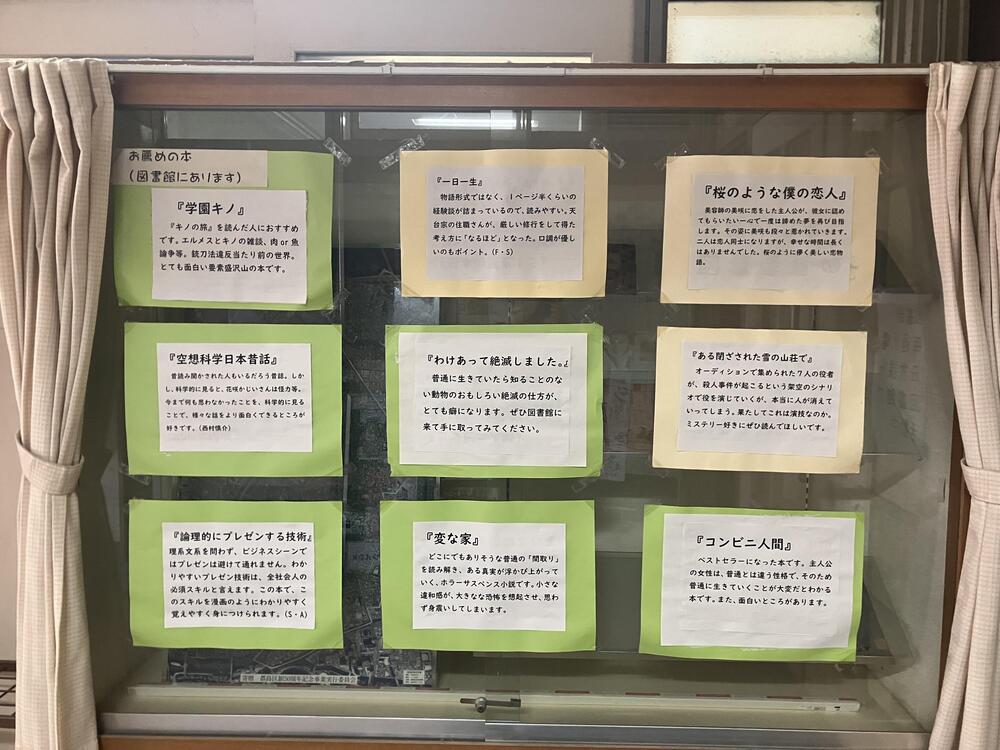 お薦めの本
(図書館にあります)
『学園キノ』
『キノの旅』を読んだ人におすすめ
です。エルメスとキノの雑談、肉 or 魚
論争等。銃刀法違反当たり前の世界。
とても面白い要素盛沢山の本です。
『一日一生』
物語形式ではなく、1ページ半くらいの
経験談が詰まっているので、読みやすい。天
台宗の住職さんが、厳しい修行をして得た
考え方に「なるほど」となった。口調が優し
いのもポイント。(F・S)
『桜のような僕の恋人』
美容師の美咲に恋をした主人公が、彼女に認め
てもらいたい一心で一度は諦めた夢を再び目指
します。その姿に美咲も段々と惹かれていきます。
二人は恋人同士になりますが、幸せな時間は長く
はありませんでした。桜のように儚く美しい恋物
語。
『空想科学日本昔話』
昔読み聞かされた人もいるだろう昔話。しか
し、科学的に見ると、花咲かじいさんは怪力等。
今まで何も思わなかったことを、科学的に見る
ことで、様々な話をより面白くできるところが
好きです。(西村慎介)
『わけあって絶滅しました。』
普通に生きていたら知ることのな
い動物のおもしろい絶滅の仕方が、
とても癖になります。ぜひ図書館に
来て手に取ってみてください。
『ある閉ざされた雪の山荘で』
オーディションで集められた7人の役者
が、殺人事件が起こるという架空のシナリ
オで役を演じていくが、本当に人が消えて
いってしまう。果たしてこれは演技なのか。
ミステリー好きにぜひ読んでほしいです。
『論理的にプレゼンする技術』
理系文系を問わず、ビジネスシーンで
はプレゼンは避けて通れません。わか
りやすいプレゼン技術は、全社会人の
必須スキルと言えます。この本で、こ
のスキルを漫画のようにわかりやすく
覚えやすく身につけられます。(S・A)
『変な家』
どこにでもありそうな普通の「間取り」
を読み解き、ある真実が浮かび上がって
いく、ホラーサスペンス小説です。小さな
違和感が、大きなな恐怖を想起させ、思わ
ず身震いしてしまいます。
『コンビニ人間』
ベストセラーになった本です。主人公
の女性は、普通とは違う性格で、そのため
普通に生きていくことが大変だとわかる
本です。また、面白いところがあります。